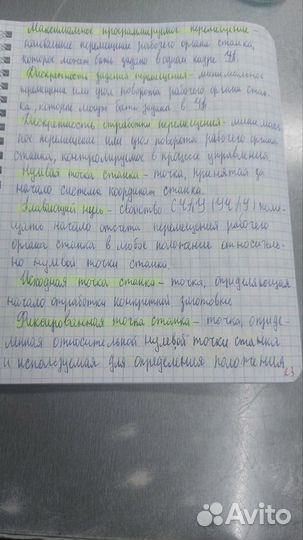 Максимальное программируемое перемещение
наибольшее перемещение рабочего органа станка,
которое может быть задано в одном кадре УП.
Дискретность задания перемещения - минимальное
перемещение или угол поворота рабочего органа стан-
ка, которые могут быть заданы в УП.
Дискретность отработки перемещения - минималь-
ное перемещение или угол поворота рабочего органа
станка, контролируемое в процессе управления.
Нулевая точка станка - точка, принятая за
начало системы координат станка.
Плавающий нуль - свойство СЧПУ (УЧПУ) поме-
щать начало отсчета перемещения рабочего
органа станка в любое положение относитель-
но нулевой точки станка.
Исходная точка станка - точка, определяющая
начало обработки конкретной заготовки
Фиксированная точка станка - точка, опреде-
ленная относительной нулевой точки станка
и используемая для определения положения
23
Avito